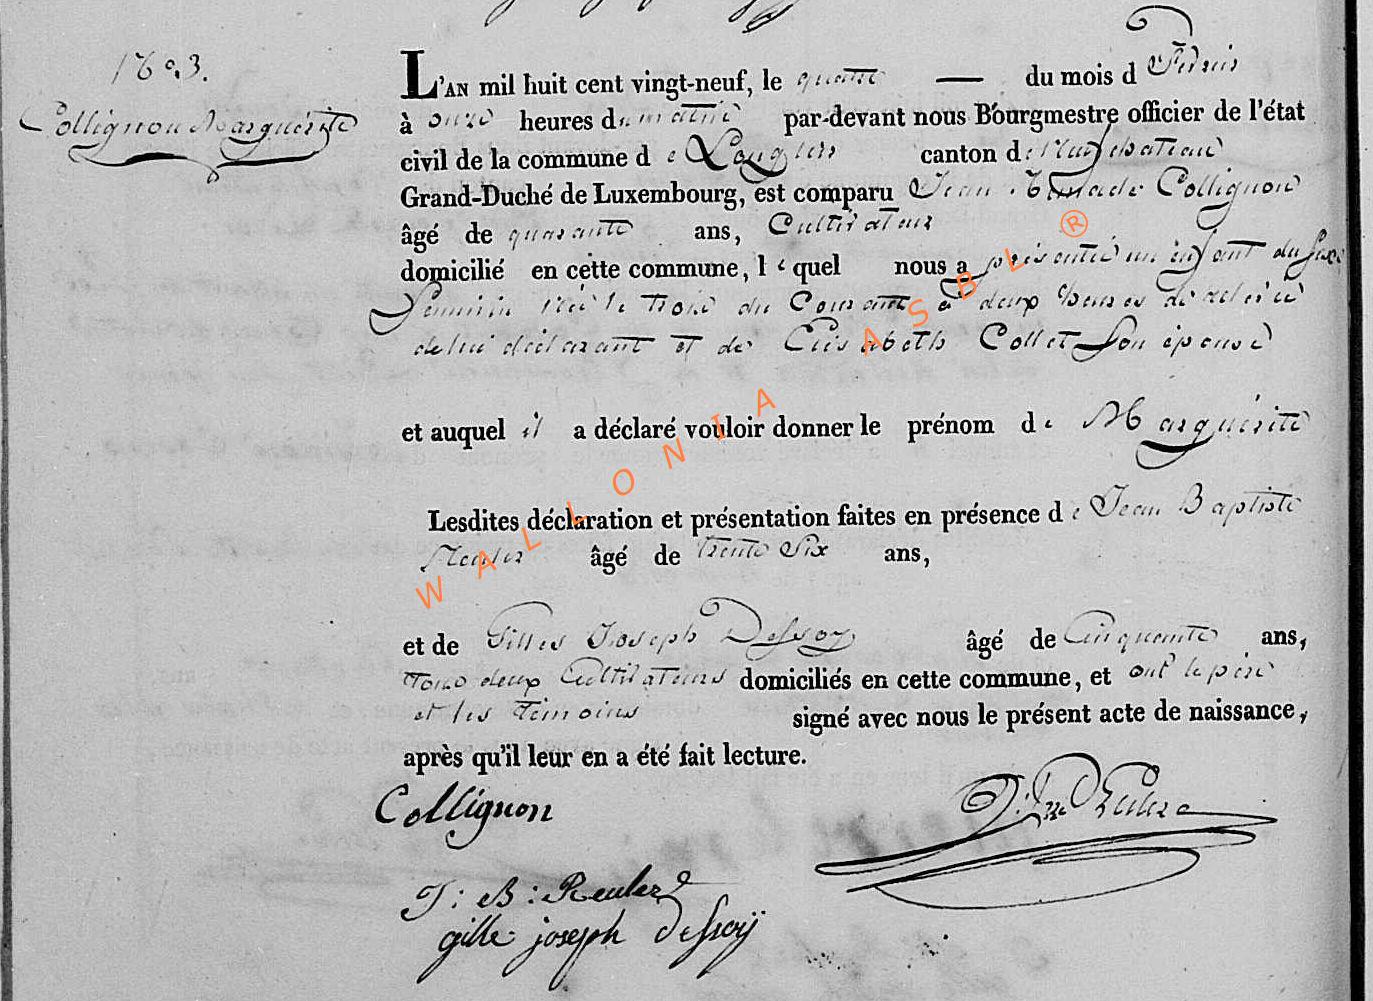 16 3.
Collignon Marguérite
L'AN mil huit cent vingt-neuf, le quatre — du mois d
à onze heures du matin par-devant nous Bourgmestre officier de l'état
civil de la commune de canton de
Grand-Duché de Luxembourg, est comparu Jean Collignon
âgé de quarante ans, Cultivateur
domicilié en cette commune, lequel nous a présenté un enfant du sexe
feminin née le trois du Courant à deux heures de relevée
de lui déclarant et de Elisabeth Collet son épouse
et auquel il a déclaré vouloir donner le prénom de Marguérite
Lesdites déclaration et présentation faites en présence de Jean Baptiste
Reuler âgé de trente Six ans,
et de Gilles Joseph Dessoy âgé de Cinquante ans,
tous deux Cultivateurs domiciliés en cette commune, et ont le père
et les témoins signé avec nous le présent acte de naissance,
après qu'il leur en a été fait lecture.
Collignon
J: B: Reuler
gille joseph dessoÿ
WALLONIA ASBL ®